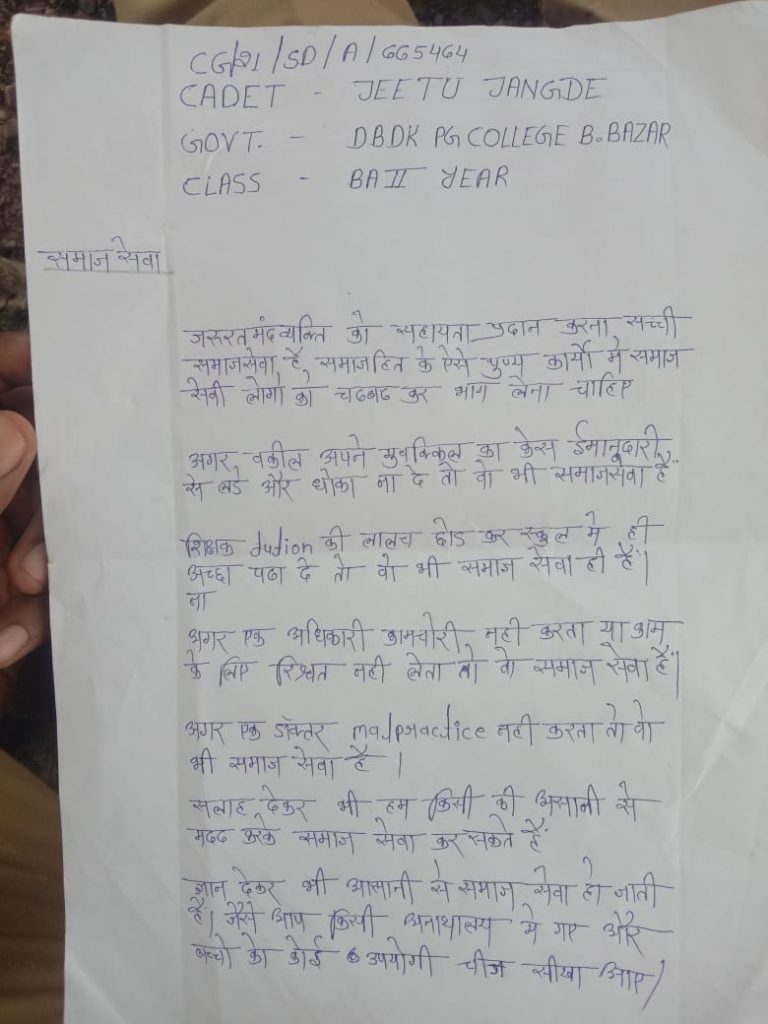 CG/21/SD/A/665464
CADET - JEETU JANGDE
GOVT. - DBDK PG COLLEGE B.BAZAR
CLASS - BA II YEAR
समाज सेवा
जरूरतमंदव्यक्ति को सहायता प्रदान करना सच्ची
समाजसेवा है, समाजहित के ऐसे पुण्य कार्यो मे समाज
सेवी लोगो को चढबढ कर भाग लेना चाहिए
अगर वकील अपने मुवक्किल का केस ईमानुदारी
से लडे और धोका ना दे तो वो भी समाजसेवा हैं
शिक्षक dudion की लालच छोड कर स्कुल मे ही
अच्छा पढा दे तो वो भी समाज सेवा ही हैं।
ना
अगर एक अधिकारी कामचोरी नही करता या काम
के लिए रिश्वत नही लेता तो वो समाज सेवा हैं।
अगर एक डॉक्तर malpractice नही करता तो वो
भी समाज सेवा है ।
सलाह देकर भी हम किसी की असानी से
मदद करके समाज सेवा कर सकते हैं
ज्ञान देकर भी आसानी से समाज सेवा हो जाती
हैं। जैसे आप किसी अनाथालय मे गए और
बच्चो को कोई उपयोगी चीज सीखा आए।